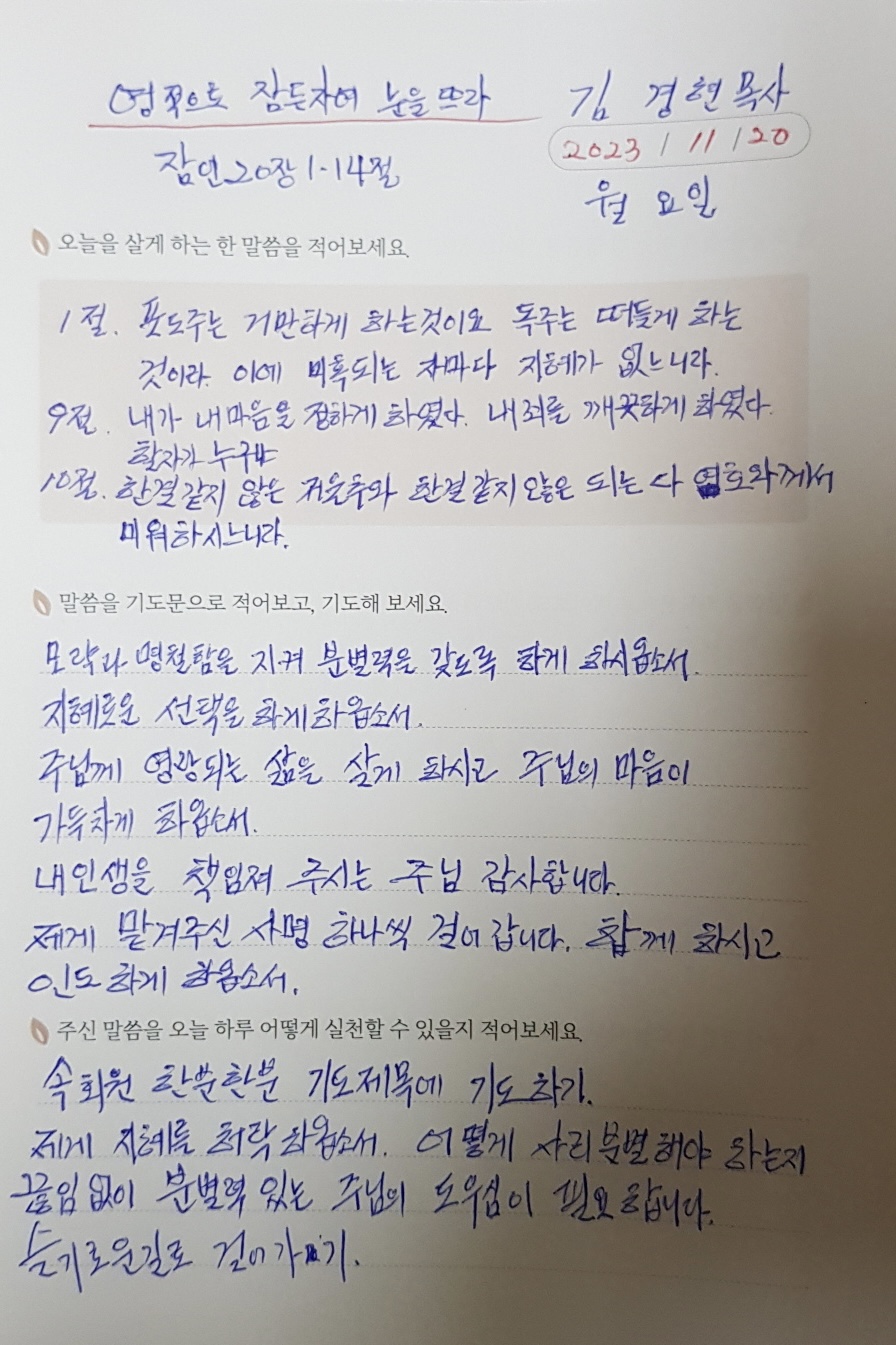 영적으로 잠든자여 눈을 뜨라
김 경현 목사
2023 / 11 / 20
잠언 20장 1-14절
월 요일
오늘을 살게 하는 한 말씀을 적어보세요.
1절. 포도주는 거만하게 하는것이요 독주는 떠들게 하는
것이라 이에 미혹되는 자마다 지혜가 없느니라.
9절. 내가 내마음을 정하게 하였다. 내죄를 깨끗하게 하였다.
할자가 누구냐
10절. 한결같지 않은 저울추와 한결같지않은 되는 다 여호와께서
미워하시느니라.
말씀을 기도문으로 적어보고, 기도해 보세요.
모략과 명철함을 지켜 분별력을 갖도록 하게 하시옵소서.
지혜로운 선택을 하게하옵소서.
주님께 영광되는 삶을 살게 하시고 주님의 마음이
가득차게 하옵소서.
내인생을 책임져 주시는 주님 감사합니다.
제게 맡겨주신 사명 하나씩 걸어 갑니다. 함께 하시고
인도하게 하옵소서.
주신 말씀을 오늘 하루 어떻게 실천할 수 있을지 적어보세요.
속회원 한분한분 기도제목에 기도하기.
제게 지혜를 허락 하옵소서. 어떻게 사리분별해야 하는지
끊임없이 분별력 있는 주님의 도우심이 필요합니다.
슬기로운길로 걸어가기.